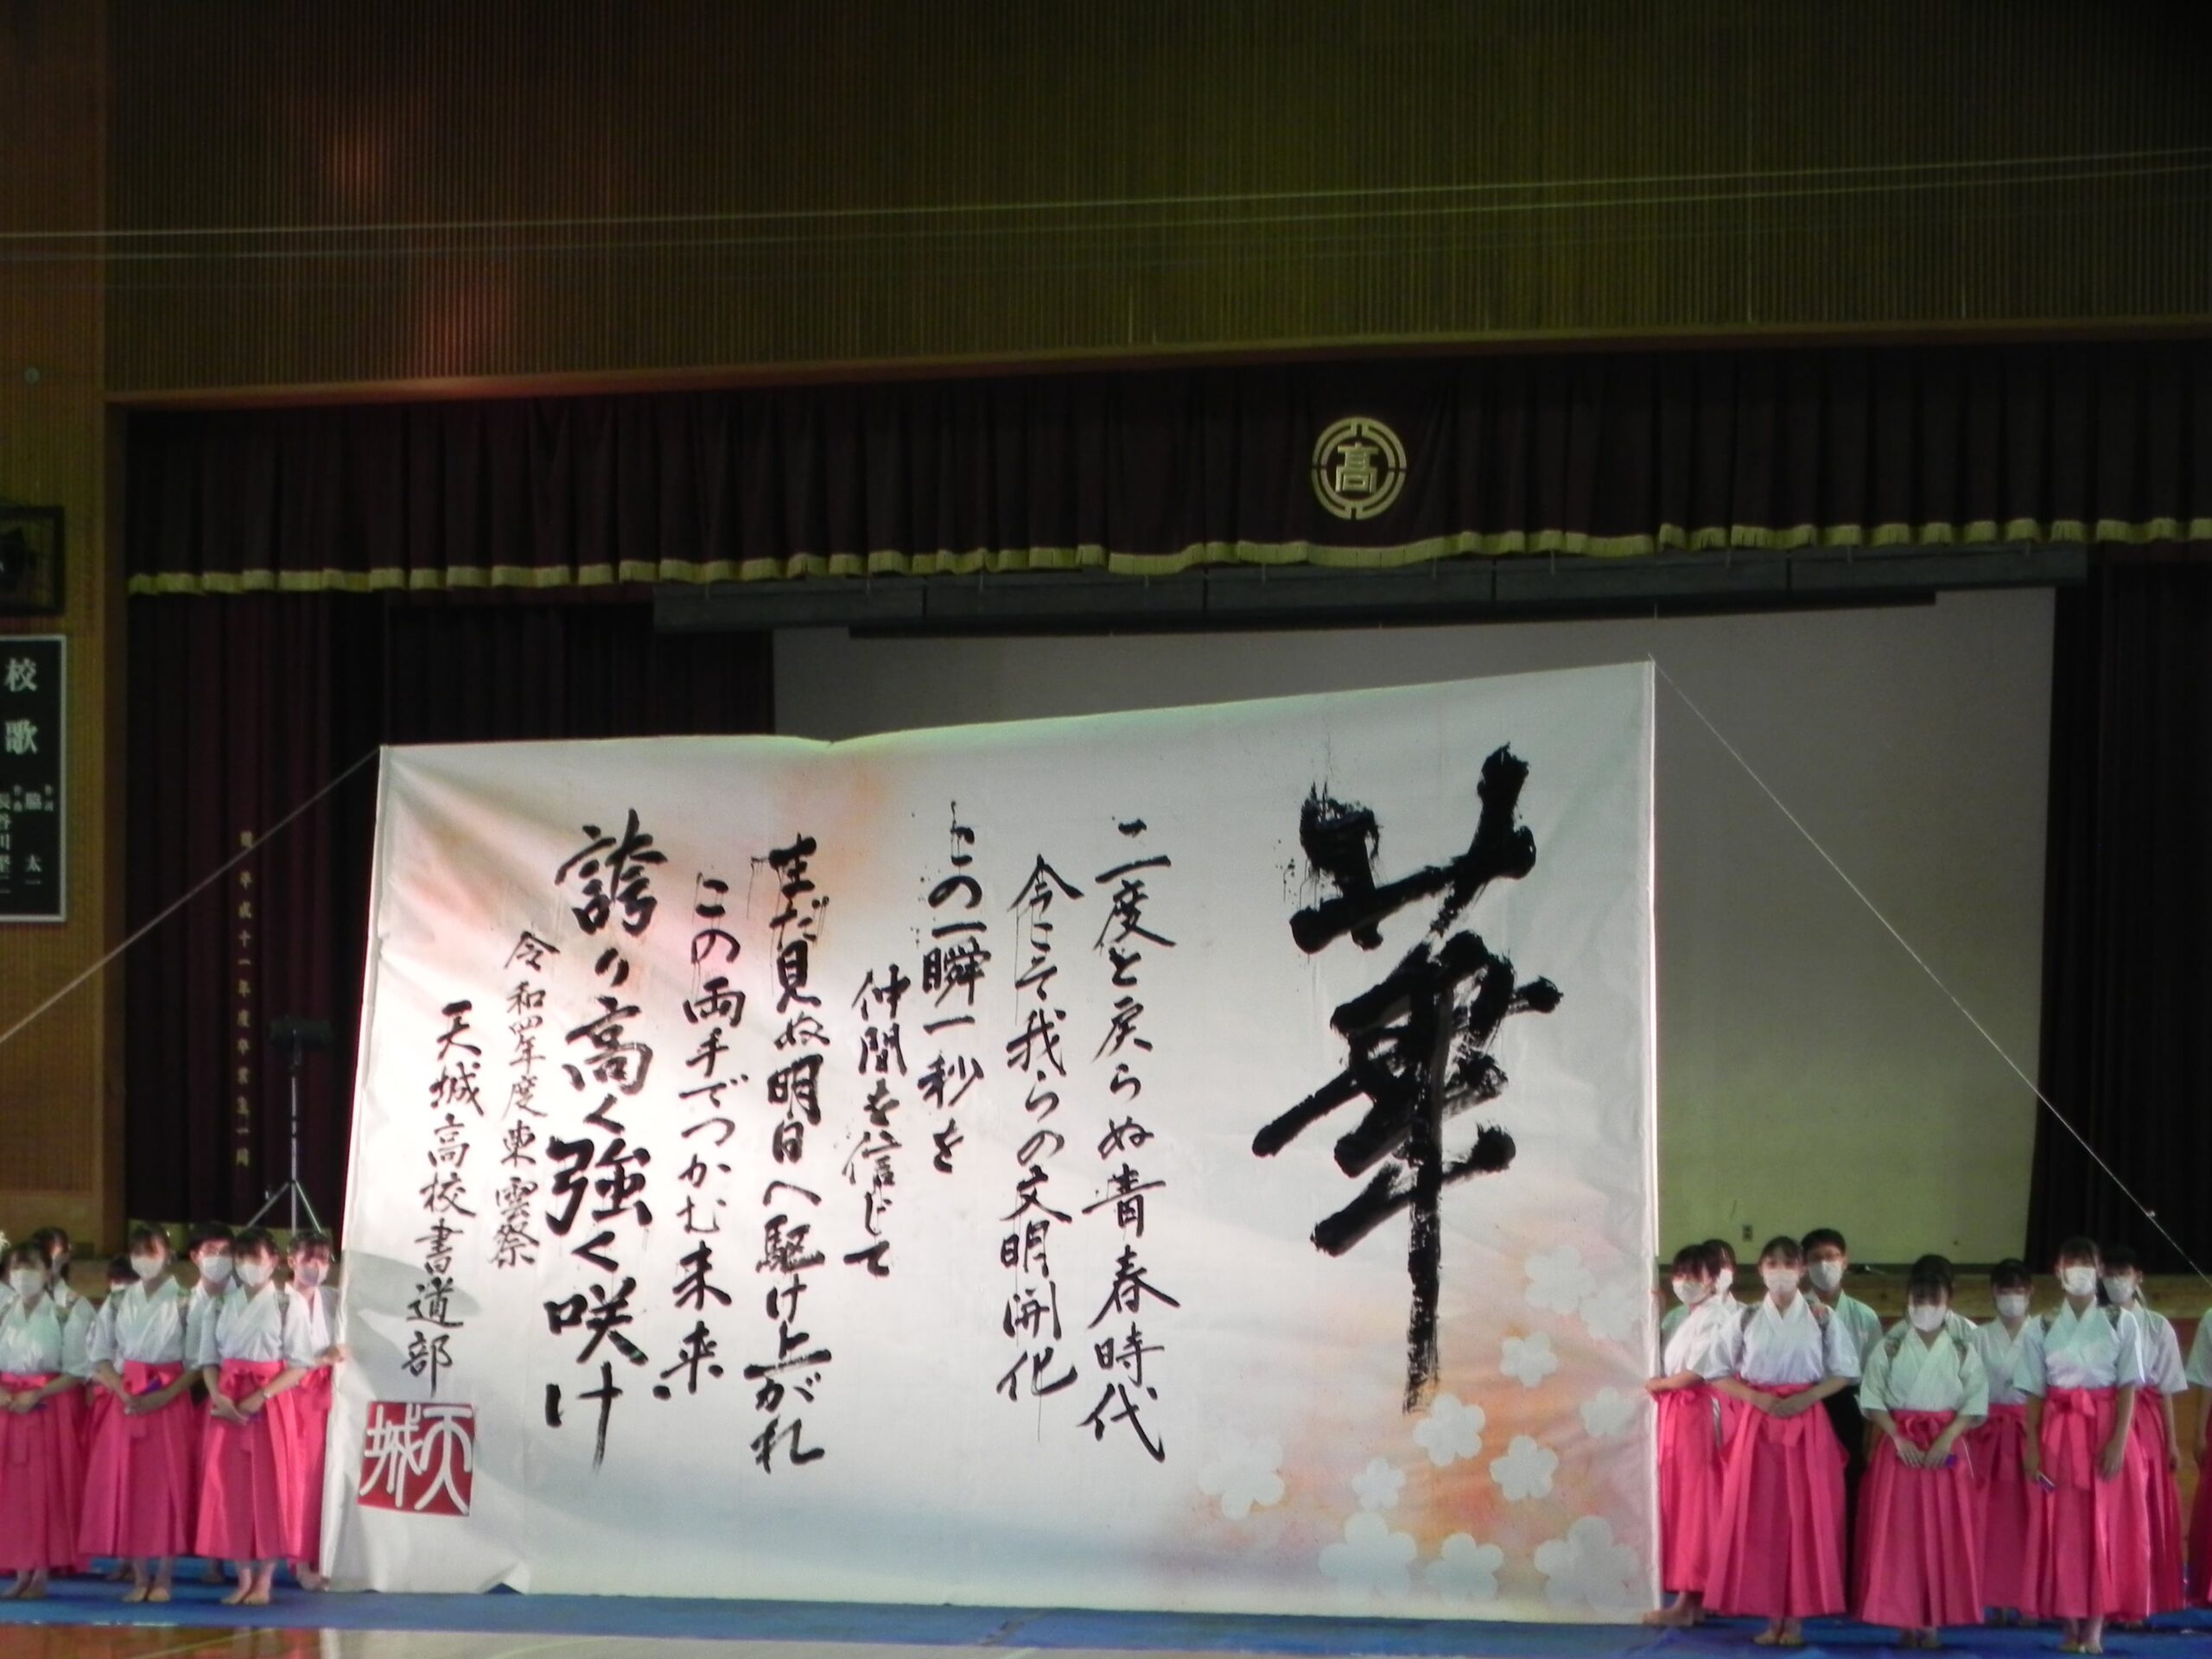 華
二度と戻らぬ青春時代
今こそ我らの文明開化
この一瞬一秒を
仲間を信じて
まだ見ぬ明日へ駆け上がれ
この両手でつかむ未来
誇り高く強く咲け
令和四年度東雲祭
天城高校書道部
天城
高
校歌
脇太一
平成十一年度卒業生一同